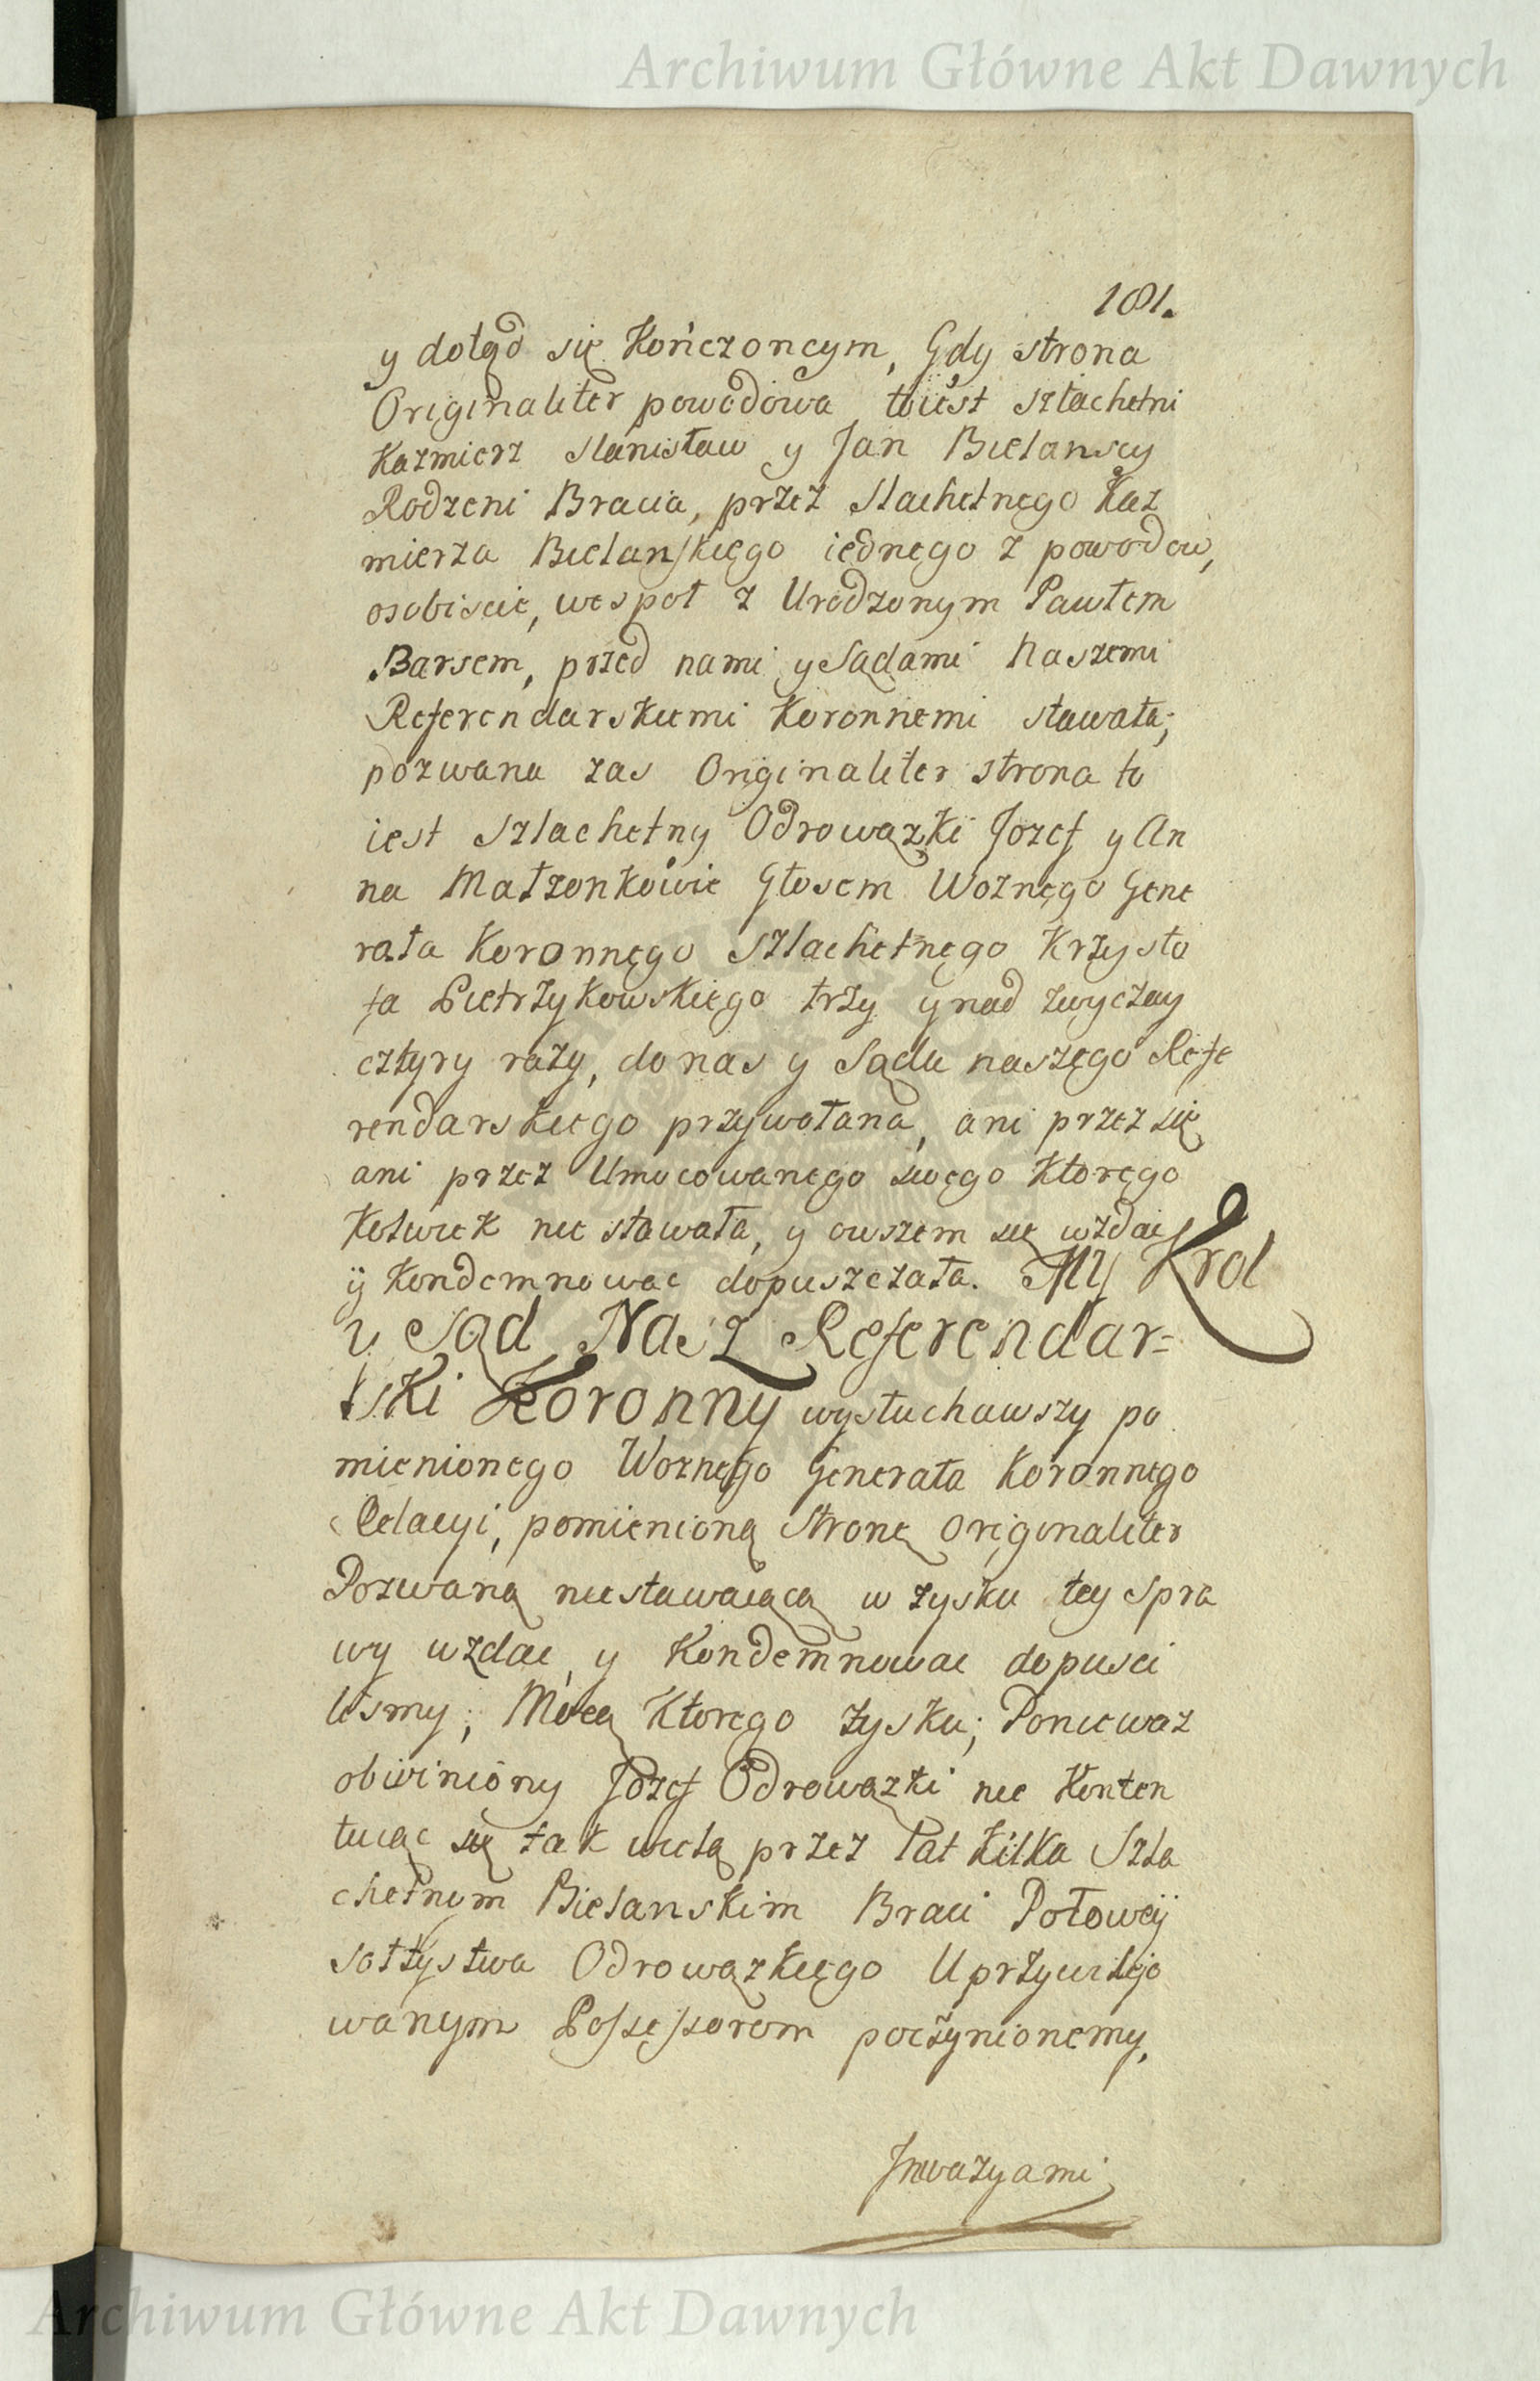 Archiwum Główne Akt Dawnych
181.
y dotąd się Kończoncym, Gdy strona
Originaliter powodowa toiest szlachetni
Kazmierz Stanisław y Jan Bielanscy
Rodzeni Bracia, przez Slachetnego Kaz
mierza Bielanskięgo iednego z powodow,
osobiscie, wespoł z Urodzonym Pawłem
Barsem, przed nami y Sądami Naszemi
Referendarskiemi Koronnemi stawała;
pozwana zas Originaliter strona to
iest Szlachetny Odrowązki Jozef y An
na Małzonkowie Głosem Woznęgo Gene
rała Koronnęgo Szlachetnęgo Krzysto
fa Pietrzykowskięgo trzy y nad zwyczay
cztyry razy, do nas y Sądu naszęgo Refe
rendarskiego przywołana, ani przez się
ani przez Umocowanego swęgo Ktoręgo
Kolwiek nie stawała, y owszem się wzdać
ÿ Kondemnowac dopuszczała. My Krol
y Sąd Nasz Referendar=
ski Koronny wysłuchawszy po
mienionego Woznęgo Generała Koronnego
Relacyi, pomienioną Stronę Originaliter
Pozwaną niestawaiącą w zysku tey spra
wy wzdac y Kondemnowac dopusci
lismy; Mocą Ktorego zysku; Poniewaz
obwiniony Jozef Odrowązki nie Konten
tuiąc się tak wielą przez lat kilka Szla
chetnym Bielanskim Braci Połowÿ
sołtystwa Odrowązkięgo Uprzywilejo
wanym Possessorom poczynionemy,
Inwazyami
Archiwum Główne Akt Dawnych